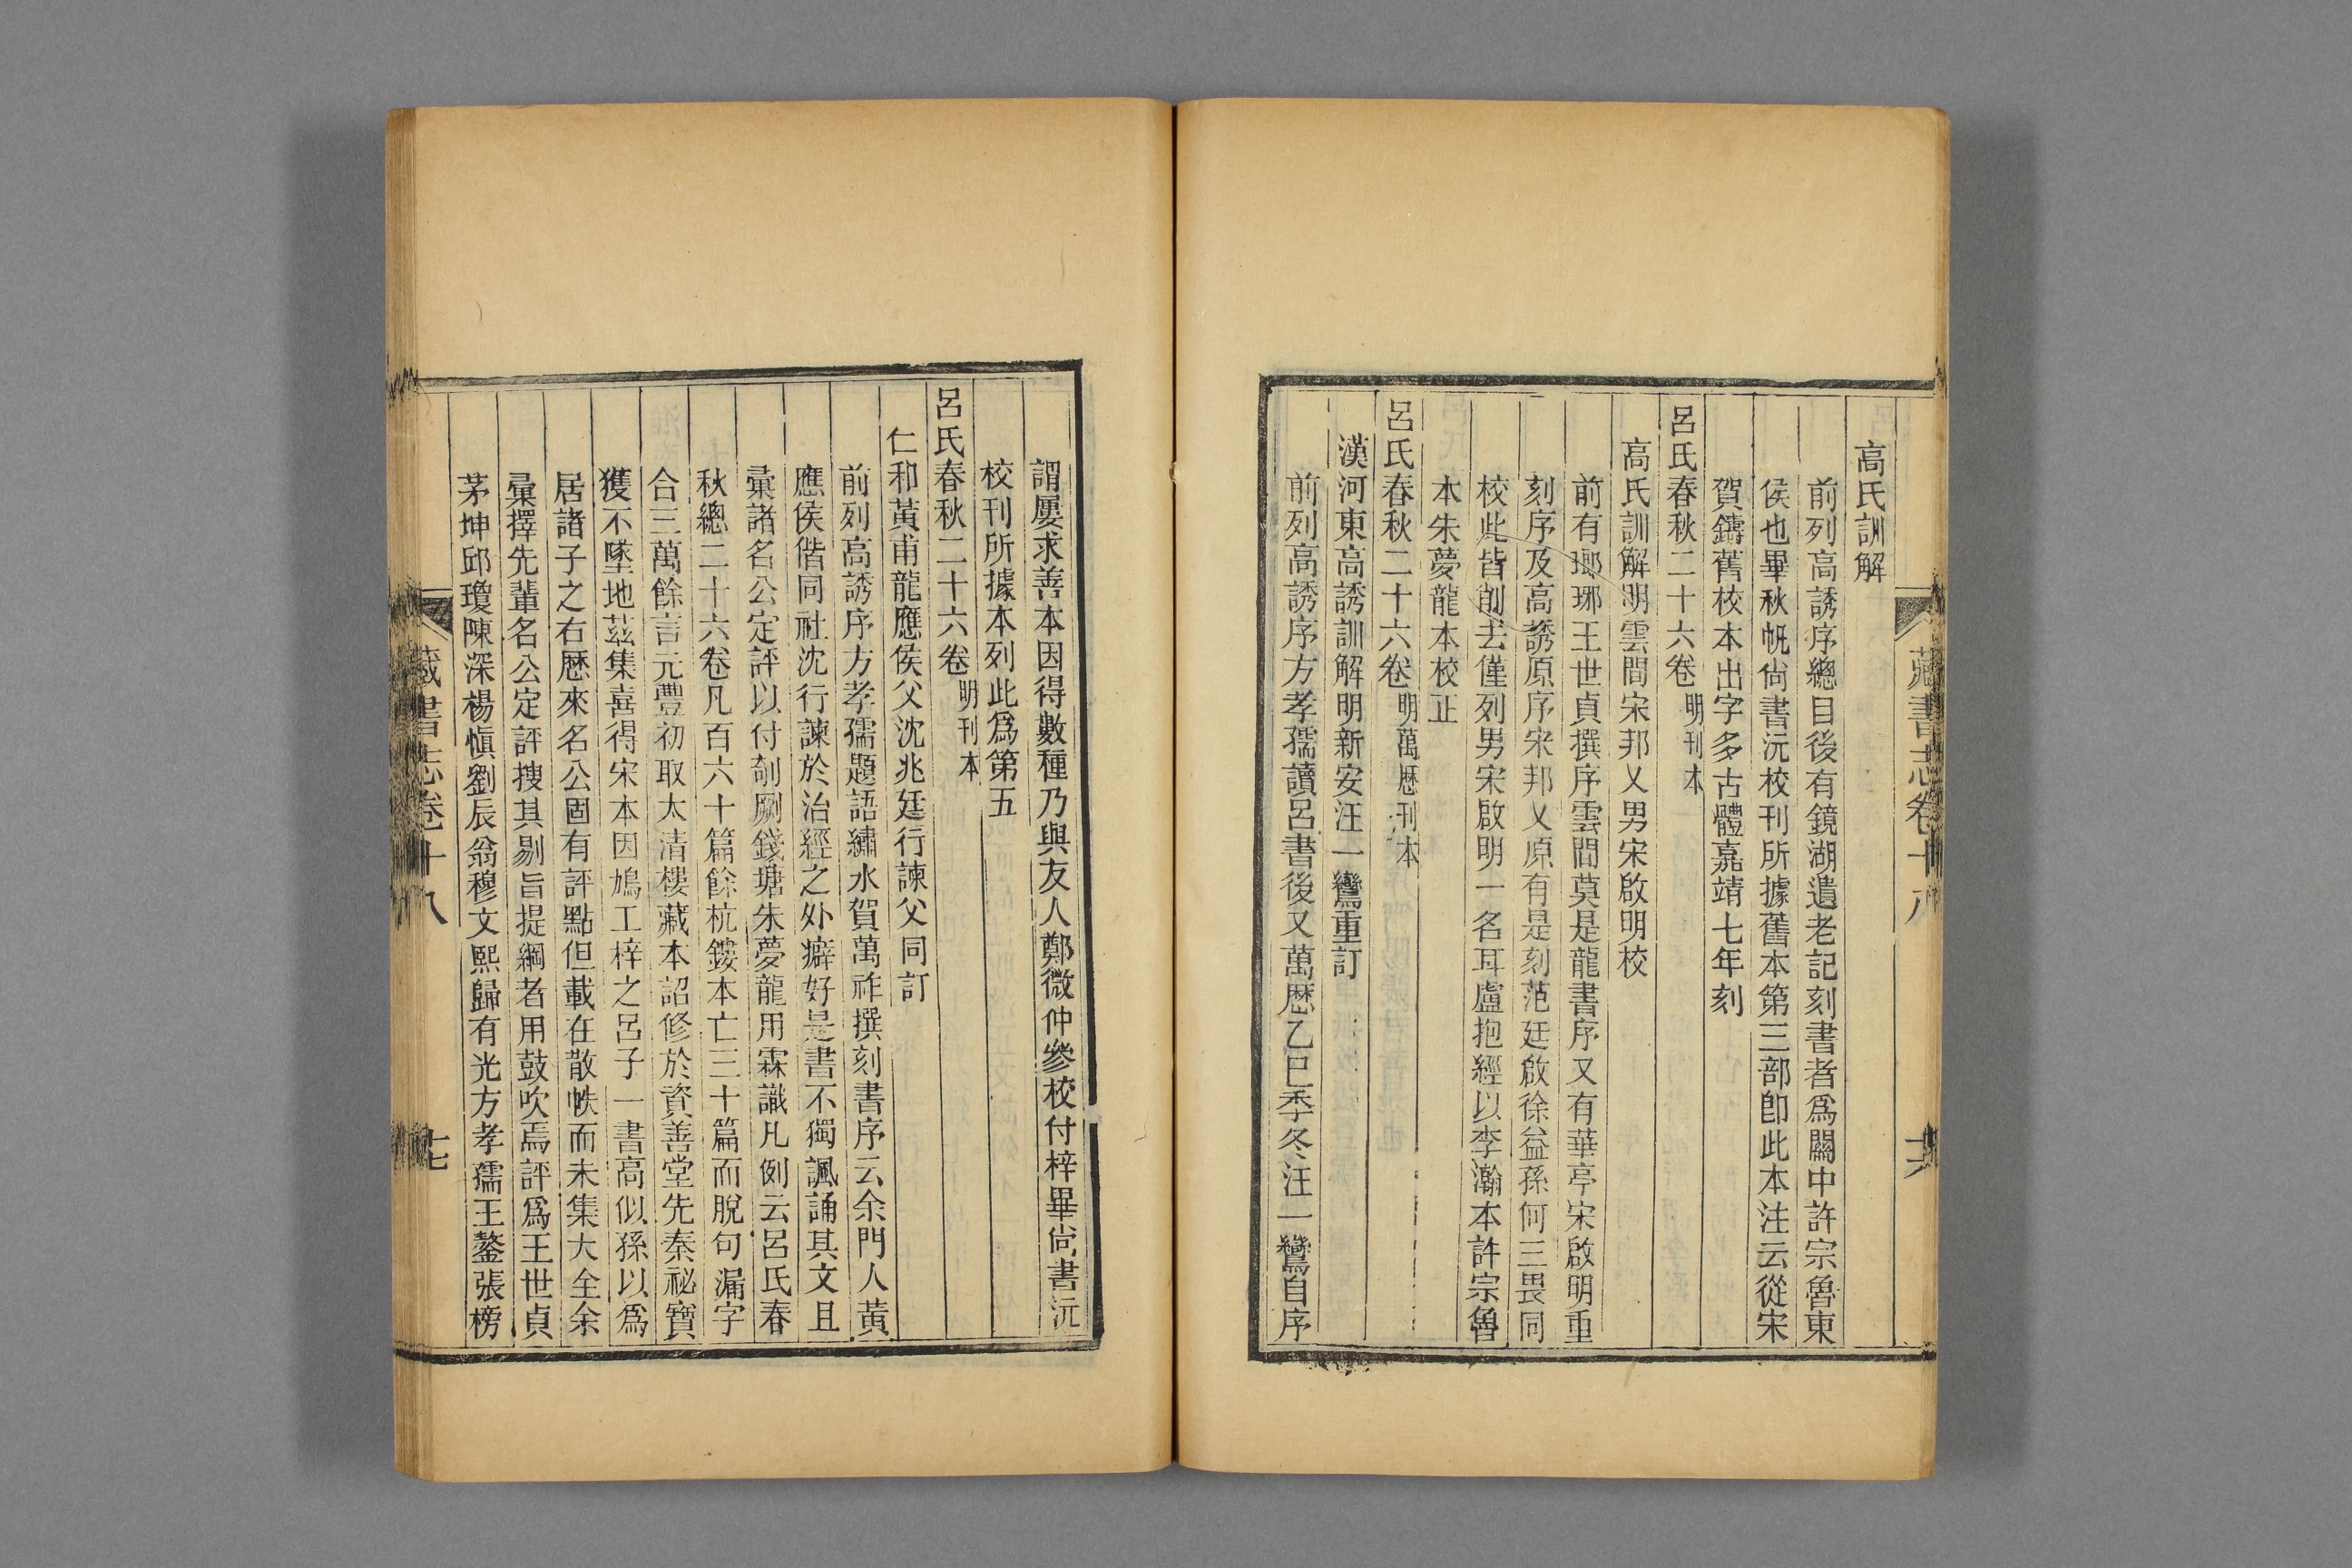 藏書志卷十八
高氏訓解
前列高誘序總目後有鏡湖遺老記刻書者爲關中許宗魯東
侯也畢秋帆尙書沅校刊所據舊本第三部卽此本注云從宋
賀鑄舊校本出字多古體嘉靖七年刻
呂氏春秋二十六卷明刊本
高氏訓解明雲間宋邦乂男宋啟明校
前有瑯琊王世貞撰序雲間莫是龍書序又有華亭宋啟明重
刻序及高誘原序宋邦乂原有是刻范廷啟徐益孫何三畏同
校此皆削去僅列男宋啟明一名耳盧抱經以李瀚本許宗魯
本朱夢龍本校正
呂氏春秋二十六卷明萬歷刊本
漢河東高誘訓解明新安汪一鸞重訂
前列高誘序方孝孺讀呂書後又萬歷乙巳季冬汪一鸞自序
謂屢求善本因得數種乃與友人鄭微仲參校付梓畢尙書沅
校刊所據本列此爲第五
呂氏春秋二十六卷明刊本
仁和黃甫龍應侯父沈兆廷行諫父同訂
前列高誘序方孝孺題語繡水賀萬祚撰刻書序云余門人黃
應侯偕同社沈行諫於治經之外癖好是書不獨諷誦其文且
彙諸名公定評以付剞劂錢塘朱夢龍用霖識凡例云呂氏春
秋總二十六卷凡百六十篇餘杭鏤本亡三十篇而脫句漏字
合三萬餘言元豐初取太清樓藏本詔修於資善堂先秦祕寶
獲不墜地茲集喜得宋本因鳩工梓之呂子一書高似孫以爲
居諸子之右歷來名公固有評點但載在散帙而未集大全余
彙擇先輩名公定評搜其剔旨提綱者用鼓吹焉評爲王世貞
茅坤邱瓊陳深楊愼劉辰翁穆文熙歸有光方孝孺王鏊張榜
藏書志卷十八